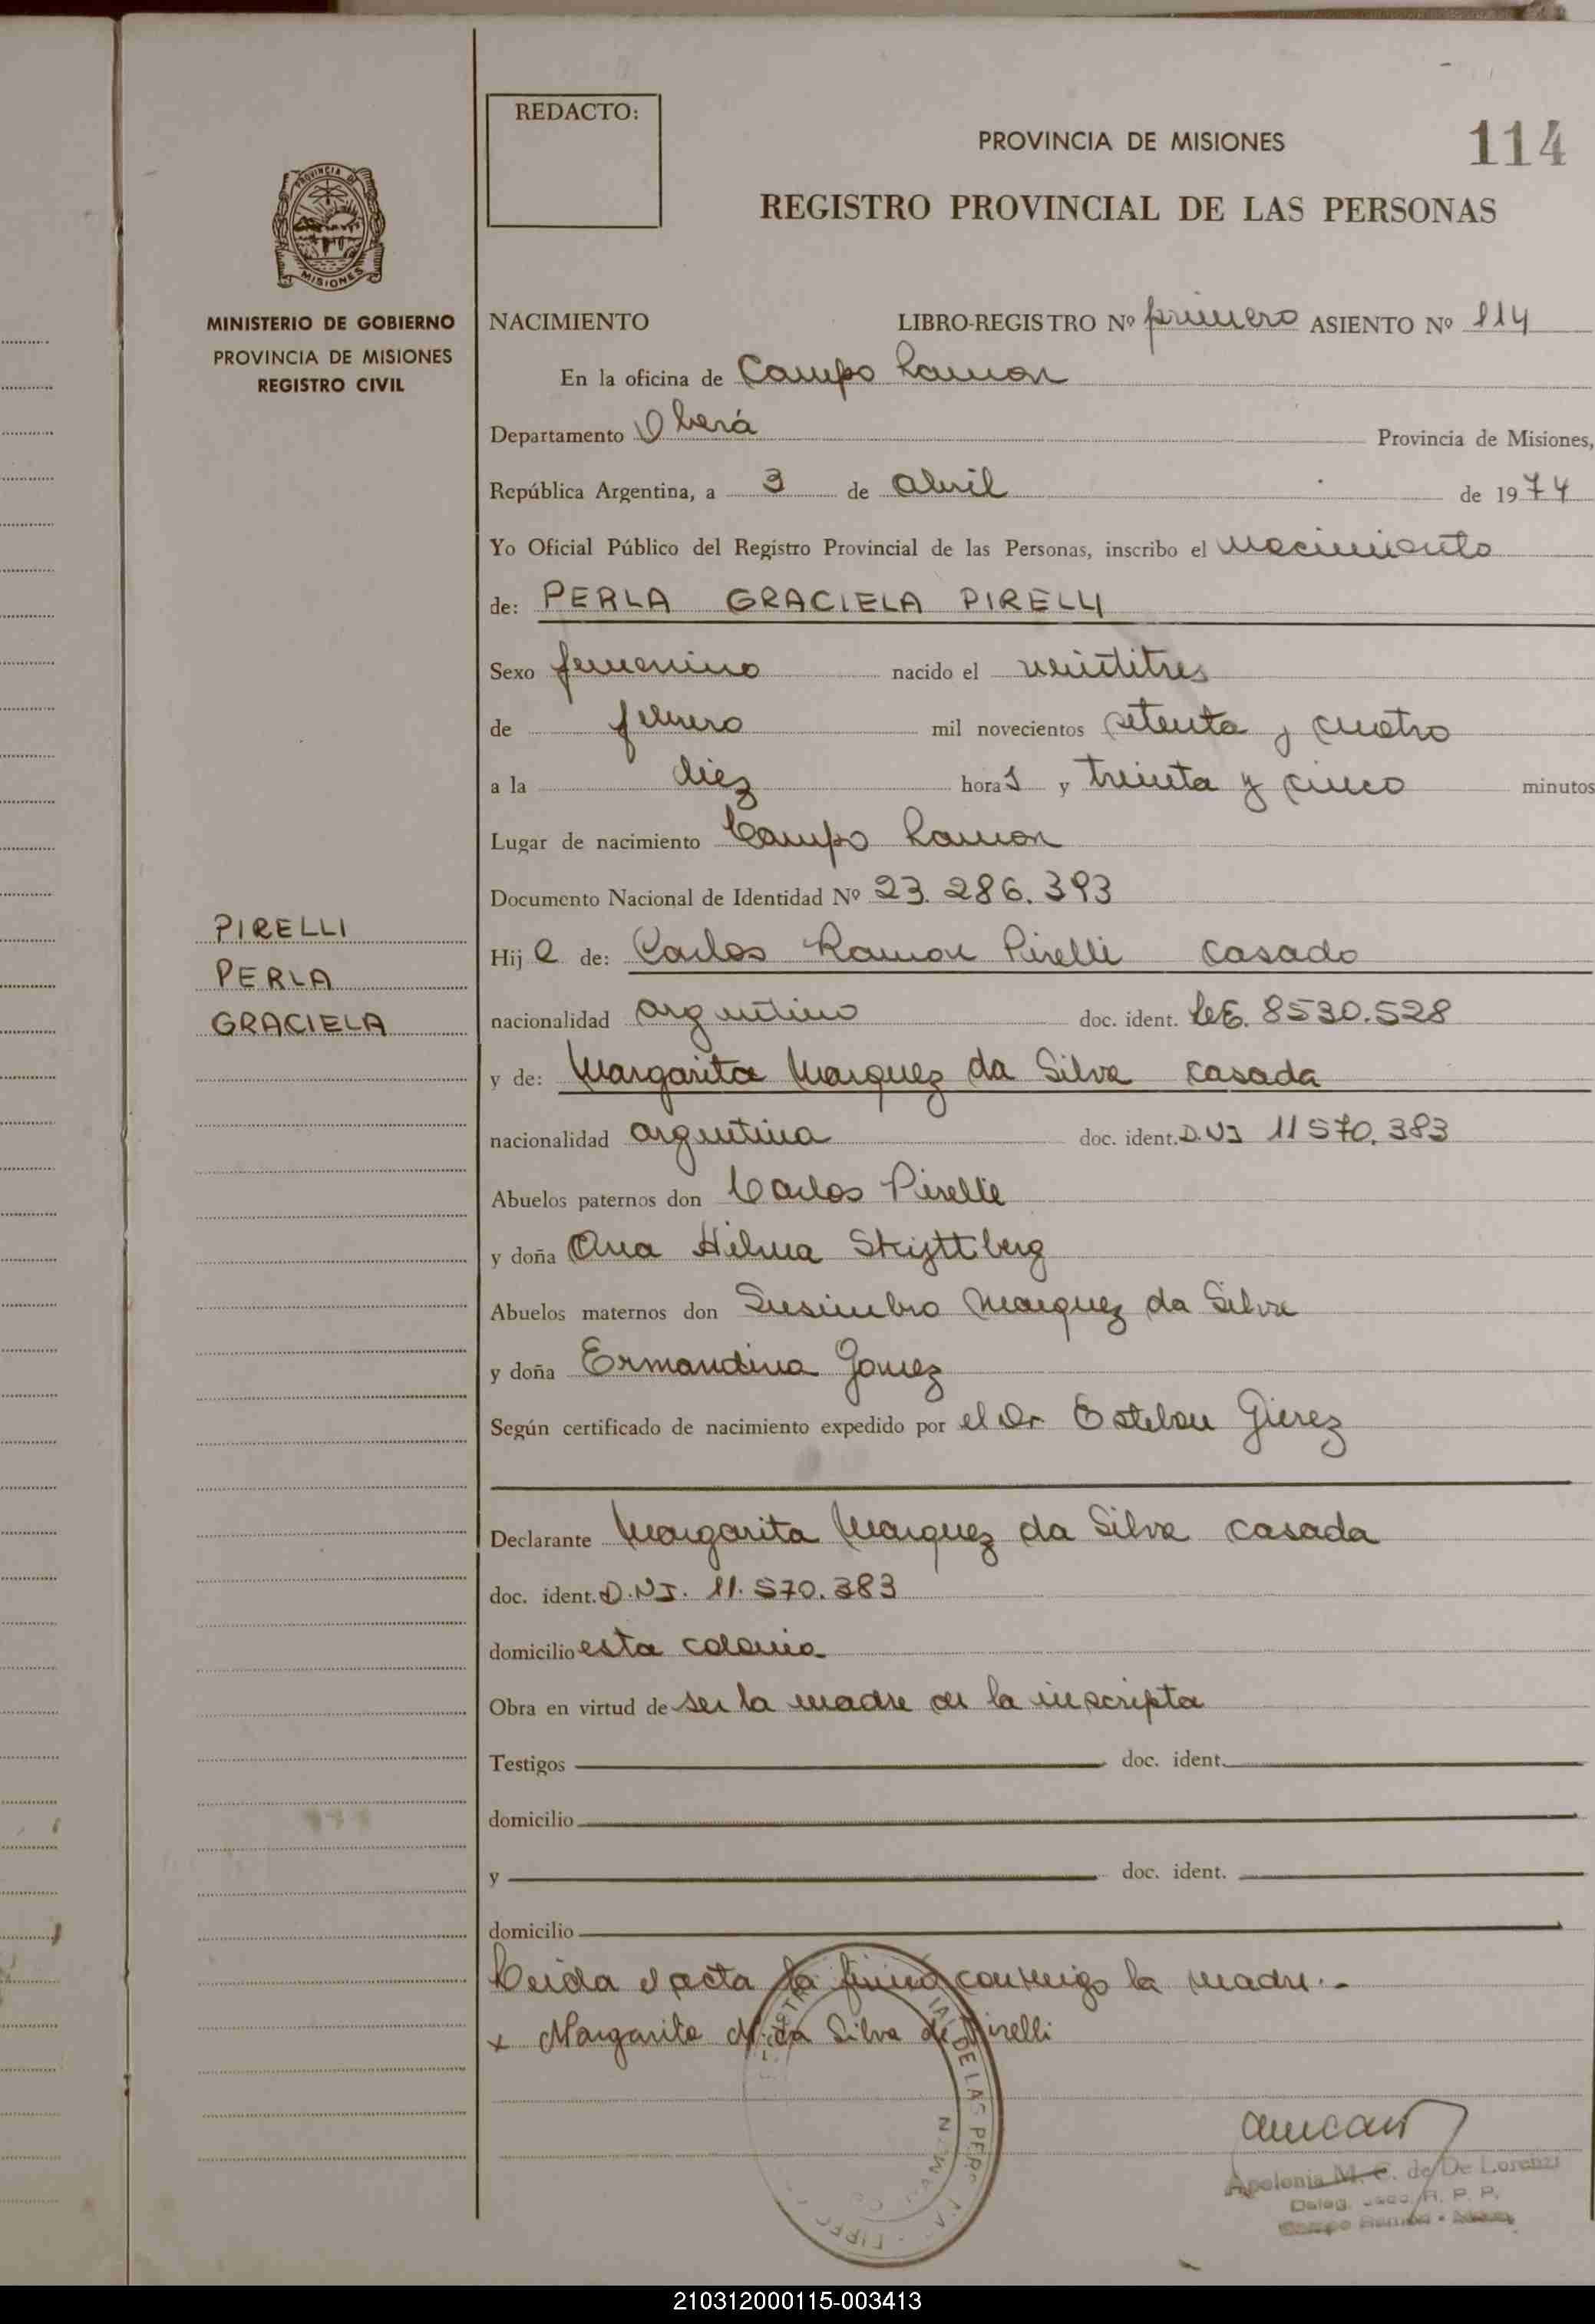 REDACTO:
PROVINCIA DE MISIONES
114
REGISTRO PROVINCIAL DE LAS PERSONAS
PROVINCIA DE
MISIONES
MINISTERIO DE GOBIERNO
PROVINCIA DE MISIONES
REGISTRO CIVIL
NACIMIENTO LIBRO-REGISTRO Nº primero ASIENTO Nº 114
En la oficina de Campo Ramon
Departamento Oberá Provincia de Misiones,
República Argentina, a 3 de abril de 1974
Yo Oficial Público del Registro Provincial de las Personas, inscribo el nacimiento
de: PERLA GRACIELA PIRELLI
Sexo femenino nacido el veintitres
de febrero mil novecientos setenta y cuatro
a la diez horas y treinta y cinco minutos
Lugar de nacimiento Campo Ramon
Documento Nacional de Identidad Nº 23.286.393
PIRELLI
PERLA
GRACIELA
Hija de: Carlos Ramon Pirelli casado
nacionalidad argentino doc. ident. L.E. 8530.528
y de: Margarita Marquez da Silva casada
nacionalidad argentina doc. ident. D.NI 11570.383
Abuelos paternos don Carlos Pirelli
y doña Ana Hilma
Abuelos maternos don Marquez da Silva
y doña Ermandina Gomez
Según certificado de nacimiento expedido por el Dr Esteban
Declarante Margarita Marquez da Silva casada
doc. ident. D.NI. 11.570.383
domicilio esta colonia
Obra en virtud de ser la madre de la inscripta
Testigos doc. ident.
domicilio
y doc. ident.
domicilio
Leida el acta la firmó conmigo la madre.-
x Margarita M. da Silva de Pirelli
DE LAS PER
Apolonia M. C. de De Lorenzi
Deleg. R. P. P.
Campo Ramon
210312000115-003413